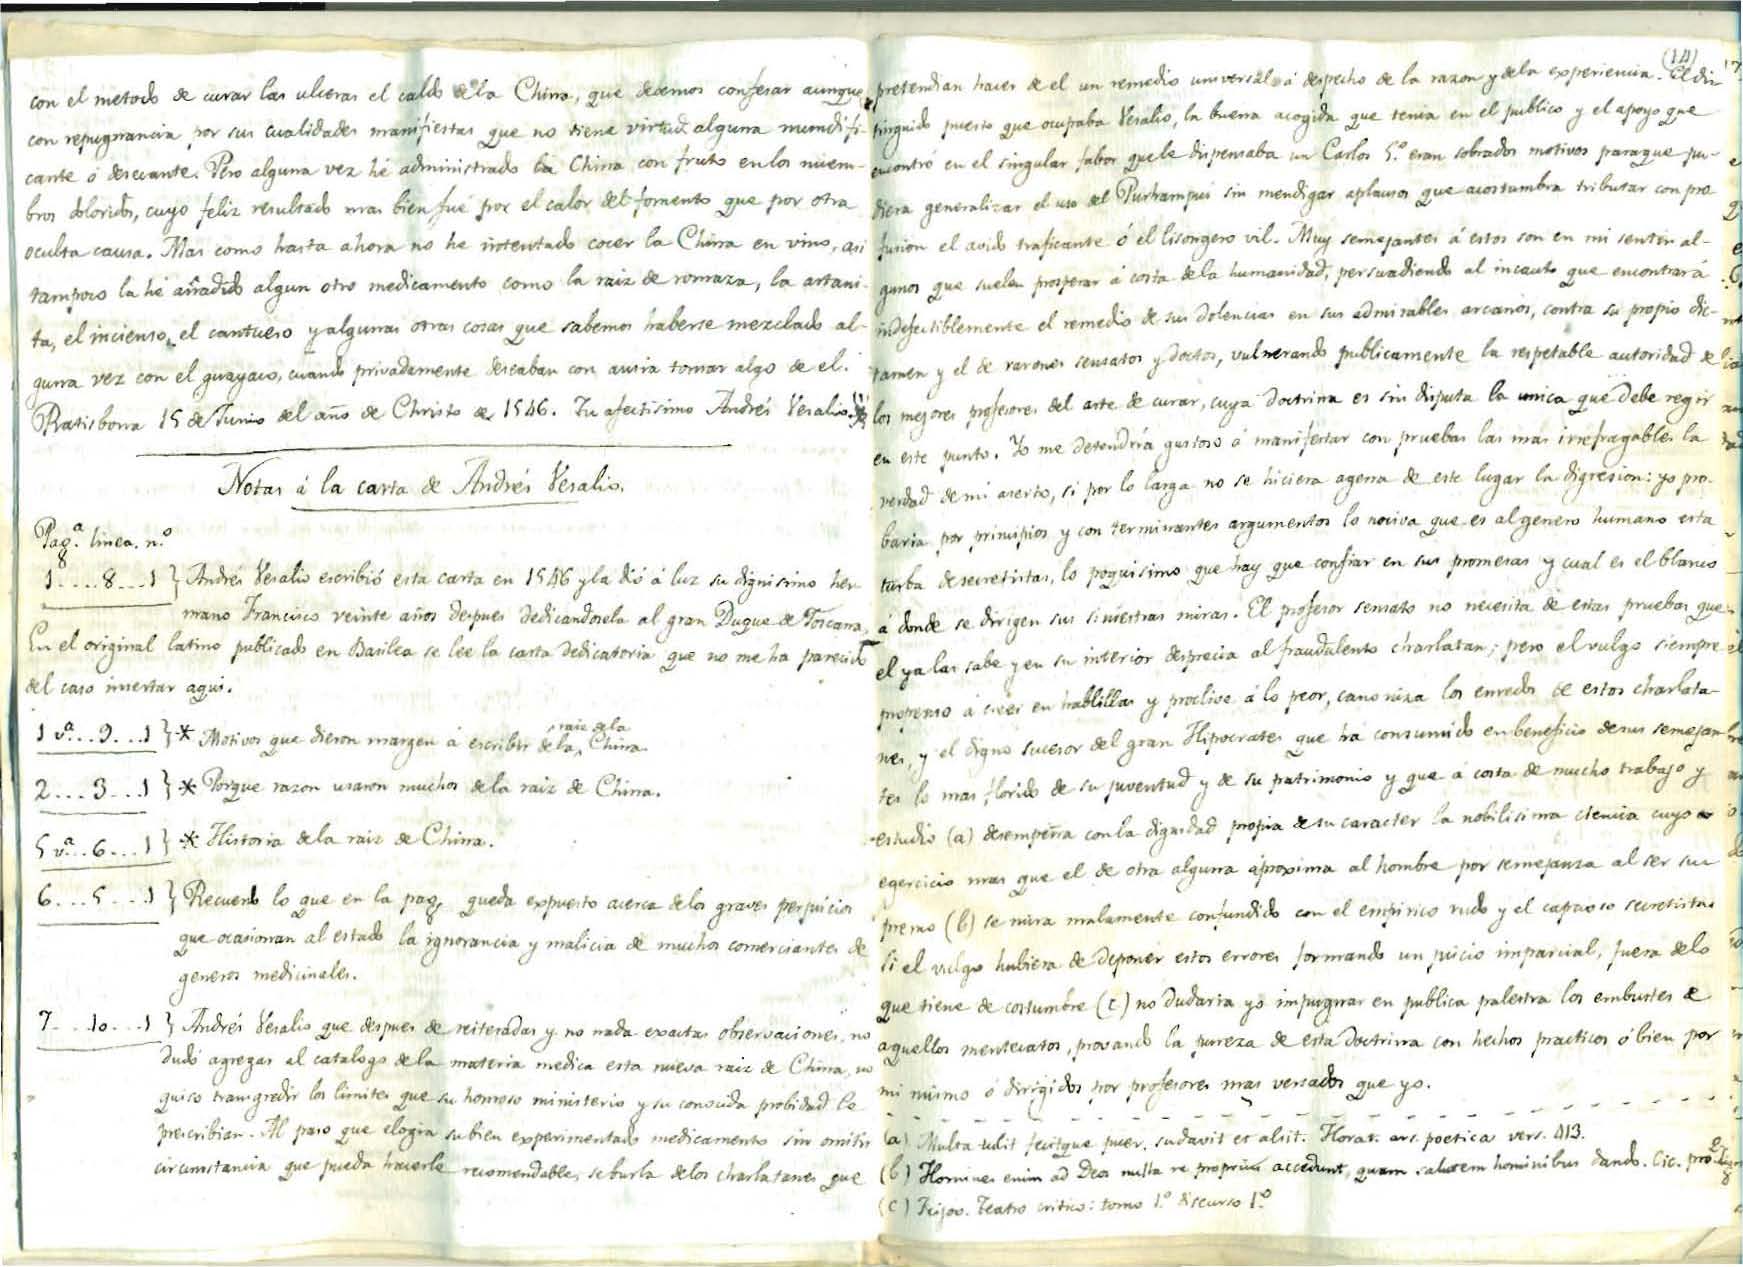 con el metodo de curar las ulceras el caldo de la China, que debemos confesar aunque
con repugnancia por sus cualidades manifiestas que no tiene virtud alguna mundifi-
cante ó desecante. Pero alguna vez hé administrado la China con fruto en los miem-
bros doloridos, cuyo feliz resultado mas bien fué por el calor del fomento que por otra
oculta causa. Mas como hasta ahora no he intentado cocer la China en vino, asi
tampoco la hé añadido algun otro medicamento como la raiz de romaza, la artani-
ta, el incienso, el cantueso y algunas otras cosas que sabemos haberse mezclado al-
guna vez con el guayaco, cuando privadamente deseaban con ansia tomar algo de el.
Ratisbona 15 de Junio del año de Christo de 1546. Tu afectisimo Andrés Vesalio.
Notas á la carta de Andrés Vesalio.
Pag.ª linea. n.º
1....8...1 } Andrés Vesalio escribió esta carta en 1546 y la dió á luz su dignisimo her
mano Francisco veinte años despues dedicandosela al gran Duque de Toscana.
En el original latino publicado en Basilea se lee la carta dedicatoria que no me ha parecido
del caso insertar aqui.
1 v.ª...9...1 } * Motivos que dieron margen á escribir de la raiz de la China.
2...3...1 } * Porque razon usaron muchos de la raiz de China.
5 v.ª...6...1 } * Historia de la raiz de China.
6...5...1 } Recuerdo lo que en la pag. queda expuesto acerca de los graves perjuicios
que ocasionan al estado la ignorancia y malicia de muchos comerciantes de
generos medicinales.
7...10...1 } Andrés Vesalio que despues de reiteradas y no nada exactas observaciones, no
dudó agregar al catalogo de la materia medica esta nueva raiz de China, no
quiso transgredir los limites que su honroso ministerio y su conocida probidad le
prescribian. Al paso que elogia su bien experimentado medicamento sin omitir
circunstancia que pueda hacerle recomendable, se burla de los charlatanes que
(14)
pretendian hacer de el un remedio universal á despecho de la razon y de la experiencia. El dis
tinguido puesto que ocupaba Vesalio, la buena acogida que tenia en el publico y el apoyo que
encontró en el singular fabor que le dispensaba un Carlos 5.º eran sobrados motivos para que pu-
diera generalizar el uso del sin mendigar aplausos que acostumbra tributar con pro
fusion el avido traficante ó el lisongero vil. Muy semejantes á estos son en mi sentir al-
gunos que suelen prosperar á costa de la humanidad, persuadiendo al incauto que encontrará
indefectiblemente el remedio de sus dolencias en sus admirables arcanos, contra su propio dic-
tamen y el de varones sensatos y doctos, vulnerando publicamente la respetable autoridad de
los mejores profesores del arte de curar, cuya doctrina es sin disputa la unica que debe regir
en este punto. Yo me detendria gustoso á manifestar con pruebas las mas irrefragables la
verdad de mi aserto, si por lo larga no se hiciera agena de este lugar la digresion: yo pro-
baria por principios y con terminantes argumentos lo nociva que es al genero humano esta
turba de secretistas, lo poquisimo que hay que confiar en sus promesas y cual es el blanco
á donde se dirigen sus siniestras miras. El profesor sensato no necesita de estas pruebas que
el ya las sabe y en su interior desprecia al fraudulento charlatan; pero el vulgo siempre
propenso á creer en hablillas y proclive á lo peor, canoniza los enredos de estos charlata-
nes, y el digno sucesor del gran Hipocrates que há consumido en beneficio de sus semejan
tes lo mas florido de su juventud y de su patrimonio y que á costa de mucho trabajo y
estudio (a) desempeña con la dignidad propia de su caracter la nobilisima ciencia cuyo
egercicio mas que el de otra alguna áproxima al hombre por semejanza al ser su
premo (b) se mira malamente confundido con el empirico rudo y el capcioso secretista.
Si el vulgo hubiera de deponer estos errores formando un juicio imparcial, fuera de lo
que tiene de costumbre (c) no dudaria yo impugnar en publica palestra los embustes de
aquellos mentecatos, provando la pureza de esta doctrina con hechos practicos ó bien por
mi mismo ó dirigidos por profesores mas versados que yo.
(a) Multa tulit fecitque puer. sudavit et alsit. Horat. ars. poetica vers. 413.
(b) Homines enim ad Deos nulla re propius accedunt, quam salutem hominibus dando. Cic. pro
(c) Feijoo. Teatro critico: tomo 1.º discurso 1.º